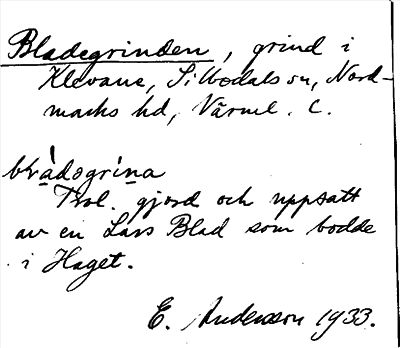 Bladegrinden, grind i
Klevane, Sillbodals sn, Nord-
marks hd, Värml. C.
Trol. gjord och uppsatt
av en Lars Blad som bodde
i Haget.
E. Andersson 1933.